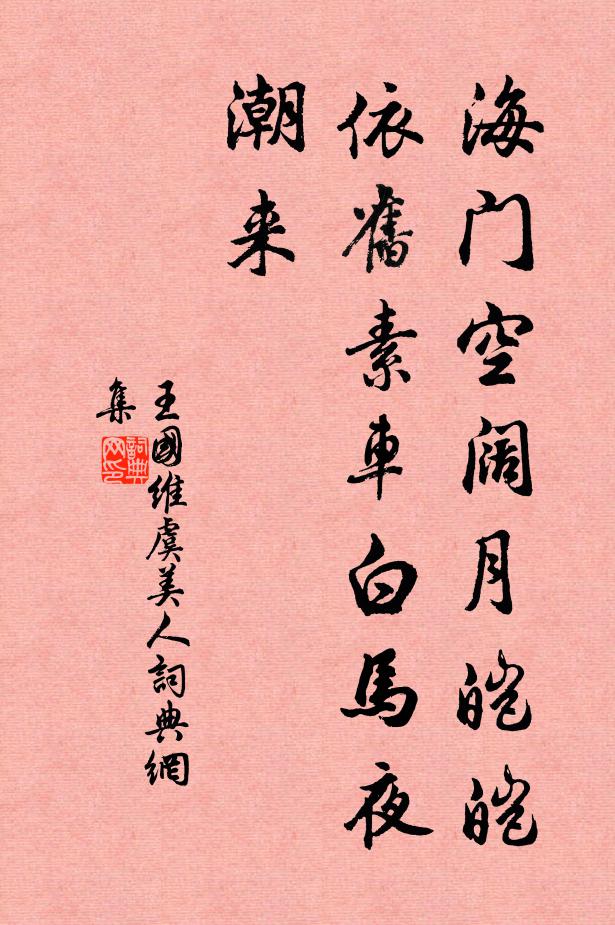 海门空阔月皑皑
依舊素車白馬夜
潮来
王國維虞美人詞典網
集
詞典
网印